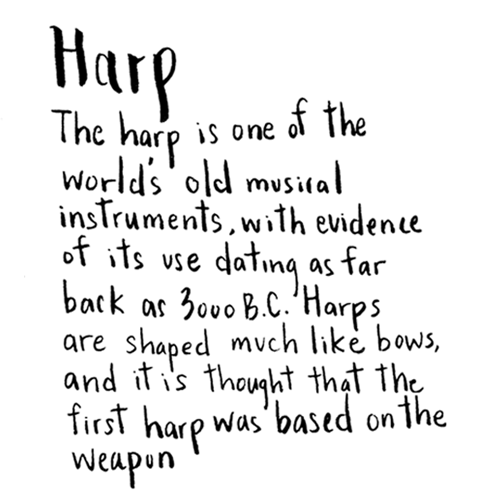 Harp
The harp is one of the
world's old musical
instruments, with evidence
of its use dating as far
back as 3000 B.C. Harps
are shaped much like bows,
and it is thought that the
first harp was based on the
weapon